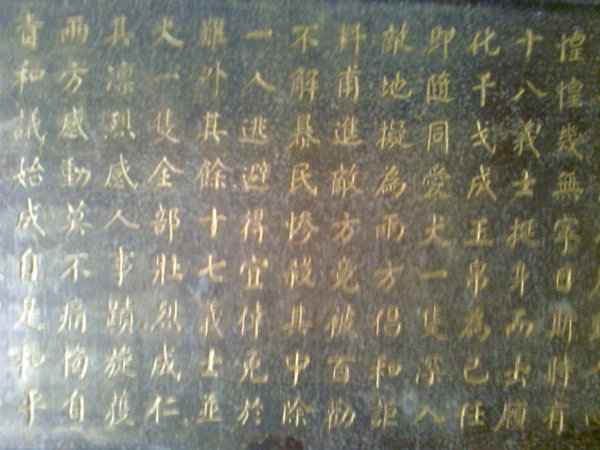 惶惶幾無寧日斯時有
十八義士挺身而出願
化干戈成玉帛為己任
即隨同愛犬一隻深入
敵地擬為兩方倡和詎
料甫進敵方竟被百勸
不解暴民慘殺其中除
一人逃避得宜倖免於
難外其餘十七義士並
犬一隻全部壯烈成仁
其凛烈感人事蹟旋獲
兩方感動莫不痛悔自
責和議始成自是和平